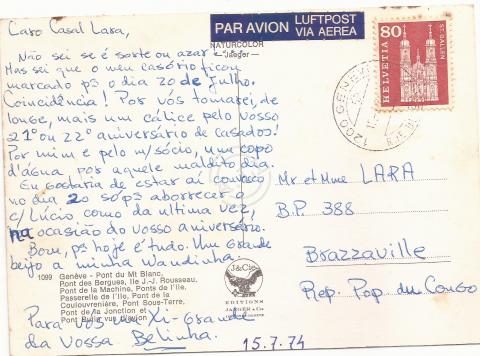 Caro Casal Lara,
Não sei se é sorte ou azar.
Mas sei que o meu casório ficou
marcado p3 o dia 20 de Julho.
Coincidência! Por vós tomarei, de
longe, mais um cálice pelo vosso
21º ou 22º aniversário de casados!
Por mim e pelo m/sócio, um copo
d'água, por aquele maldito dia.
Eu gostaria de estar aí convosco
no dia 20 só p3 aborrecer a
c/Lúcio como da última vez,
na ocasião do vosso aniversário.
Bom, ps hoje é tudo. Um grande
beijo a minha Wandinha.
1099 Genève - Pont du Mt Blanc,
Pont des Bergues, Ile J.-J. Rousseau,
Pont de la Machine, Ponts de l'Ile,
Passerelle de l'Ile, Pont de la
Coulouvrenière, Pont Sous-Terre,
Pont de la Jonction et
Pont Butin vus d'avion
Para vós un Xi-Grande
da Vossa Belinha.
NATURCOLOR
Jaeger
J&Cie
EDITIONS
JAEGER & Co
PAR AVION LUFTPOST
VIA AEREA
80
HELVETIA
ST. GALLEN
1200 GENÈVE
Mr et Mme LARA
B.P. 388
Brazzaville
Rep. Pop. du Congo
15.7.74